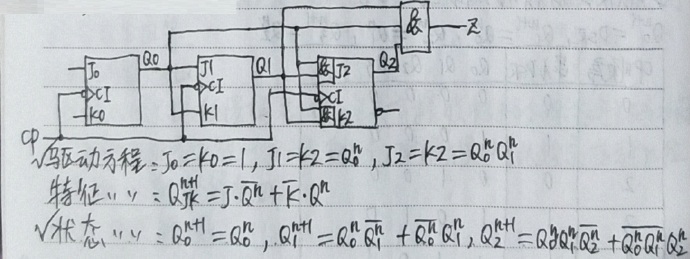 & Z
J0 Q0 J1 Q1 & J2 Q2
CI CI CI
K0 K1 & K2
CP
√驱动方程:J₀=K₀=1, J1=K2=Q₀ⁿ, J₂=K2=Q₀ⁿQ₁ⁿ
特征〃〃:Q_{JK}^{n+1}=J·\overline{Qⁿ}+\overline{K}·Qⁿ
√状态〃〃:Q₀^{n+1}=Q₀ⁿ, Q₁^{n+1}=Q₀ⁿ\overline{Q₁ⁿ}+\overline{Q₀ⁿ}Q₁ⁿ, Q₂^{n+1}=Q₀ⁿQ₁ⁿ\overline{Q₂ⁿ}+\overline{Q₀ⁿQ₁ⁿ}Q₂ⁿ